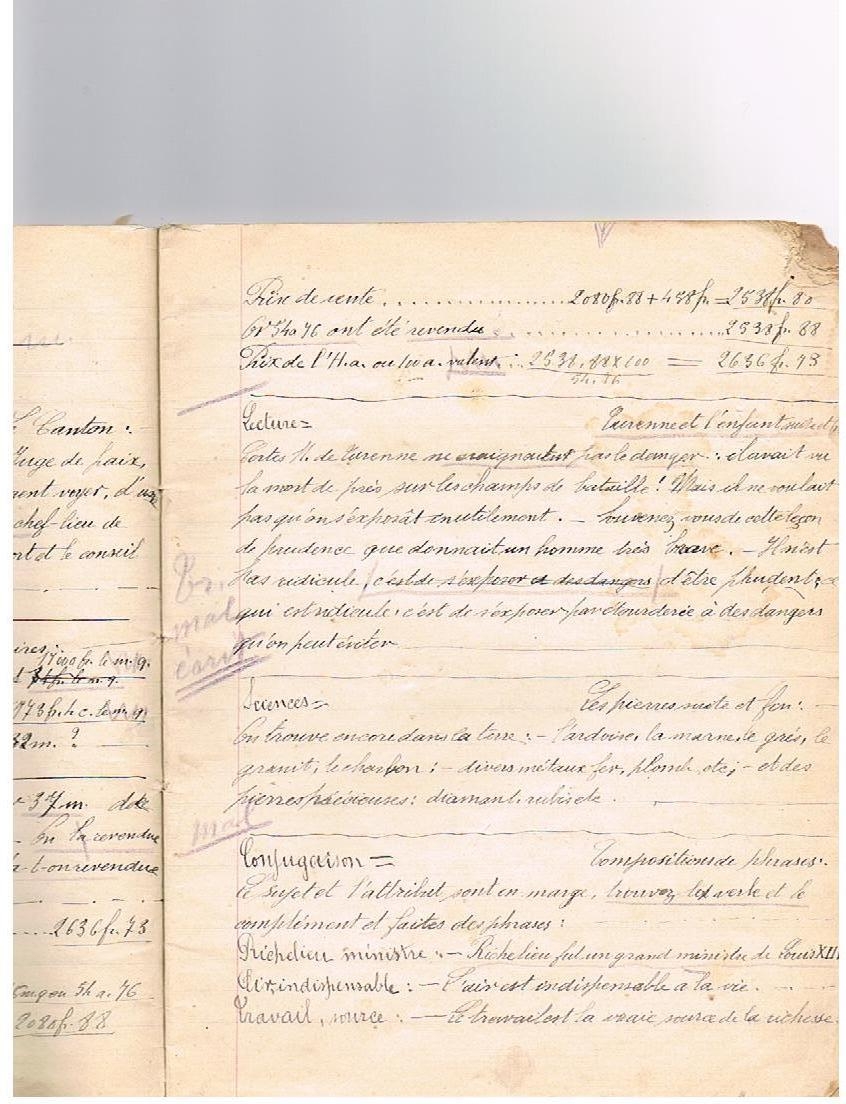 Canton :
Juge de paix,
ment voyer, d'un
chef-lieu de
ort et le conseil
ires :
17100 fr. le m. q.
32 m. ?
37 m. de
On la revendue
a-t-on revendue
2636 fr. 73
54 a. 76
2080 fr. 88
Prix de vente ............ 2080 fr. 88 + 458 fr. = 2538 fr. 80
Or 54 a 76 ont été revendus ............ 2538 fr. 88
Prix de l'H.a. ou 100 a. valent : 2538,88 x 100 = 2636 fr. 73
54.76
Lecture = Turenne et l'enfant suite et f
Certes M. de Turenne ne craignait pas le danger : il avait vu
la mort de près sur les champs de bataille ! Mais il ne voulait
pas qu'on s'exposât inutilement. – Souvenez vous de cette leçon
de prudence que donnait un homme très brave. – Il n'est
pas ridicule (c'est de s'exposer à des dangers) d'être phudent ; ce
qui est ridicule, c'est de s'exposer par étourderie à des dangers
qu'on peut éviter
Tr.
mal
écrit
Sciences = Les pierres suite et fin : –
On trouve encore dans la terre : – l'ardoise, la marne, le grès, le
granit, le charbon : – divers métaux fer, plomb, etc ; – et des
pierres précieuses : diamant, rubis etc.
mal
Conjugaison = Compositions de phrases :
Le sujet et l'attribut sont en marge, trouvez le verbe et le
complément et faites des phrases :
Richelieu ministre : – Richelieu fut un grand ministre de Louis XIII
Air indispensable : – L'air est indispensable à la vie.
Travail, source : – Le travail est la vraie source de la richesse.